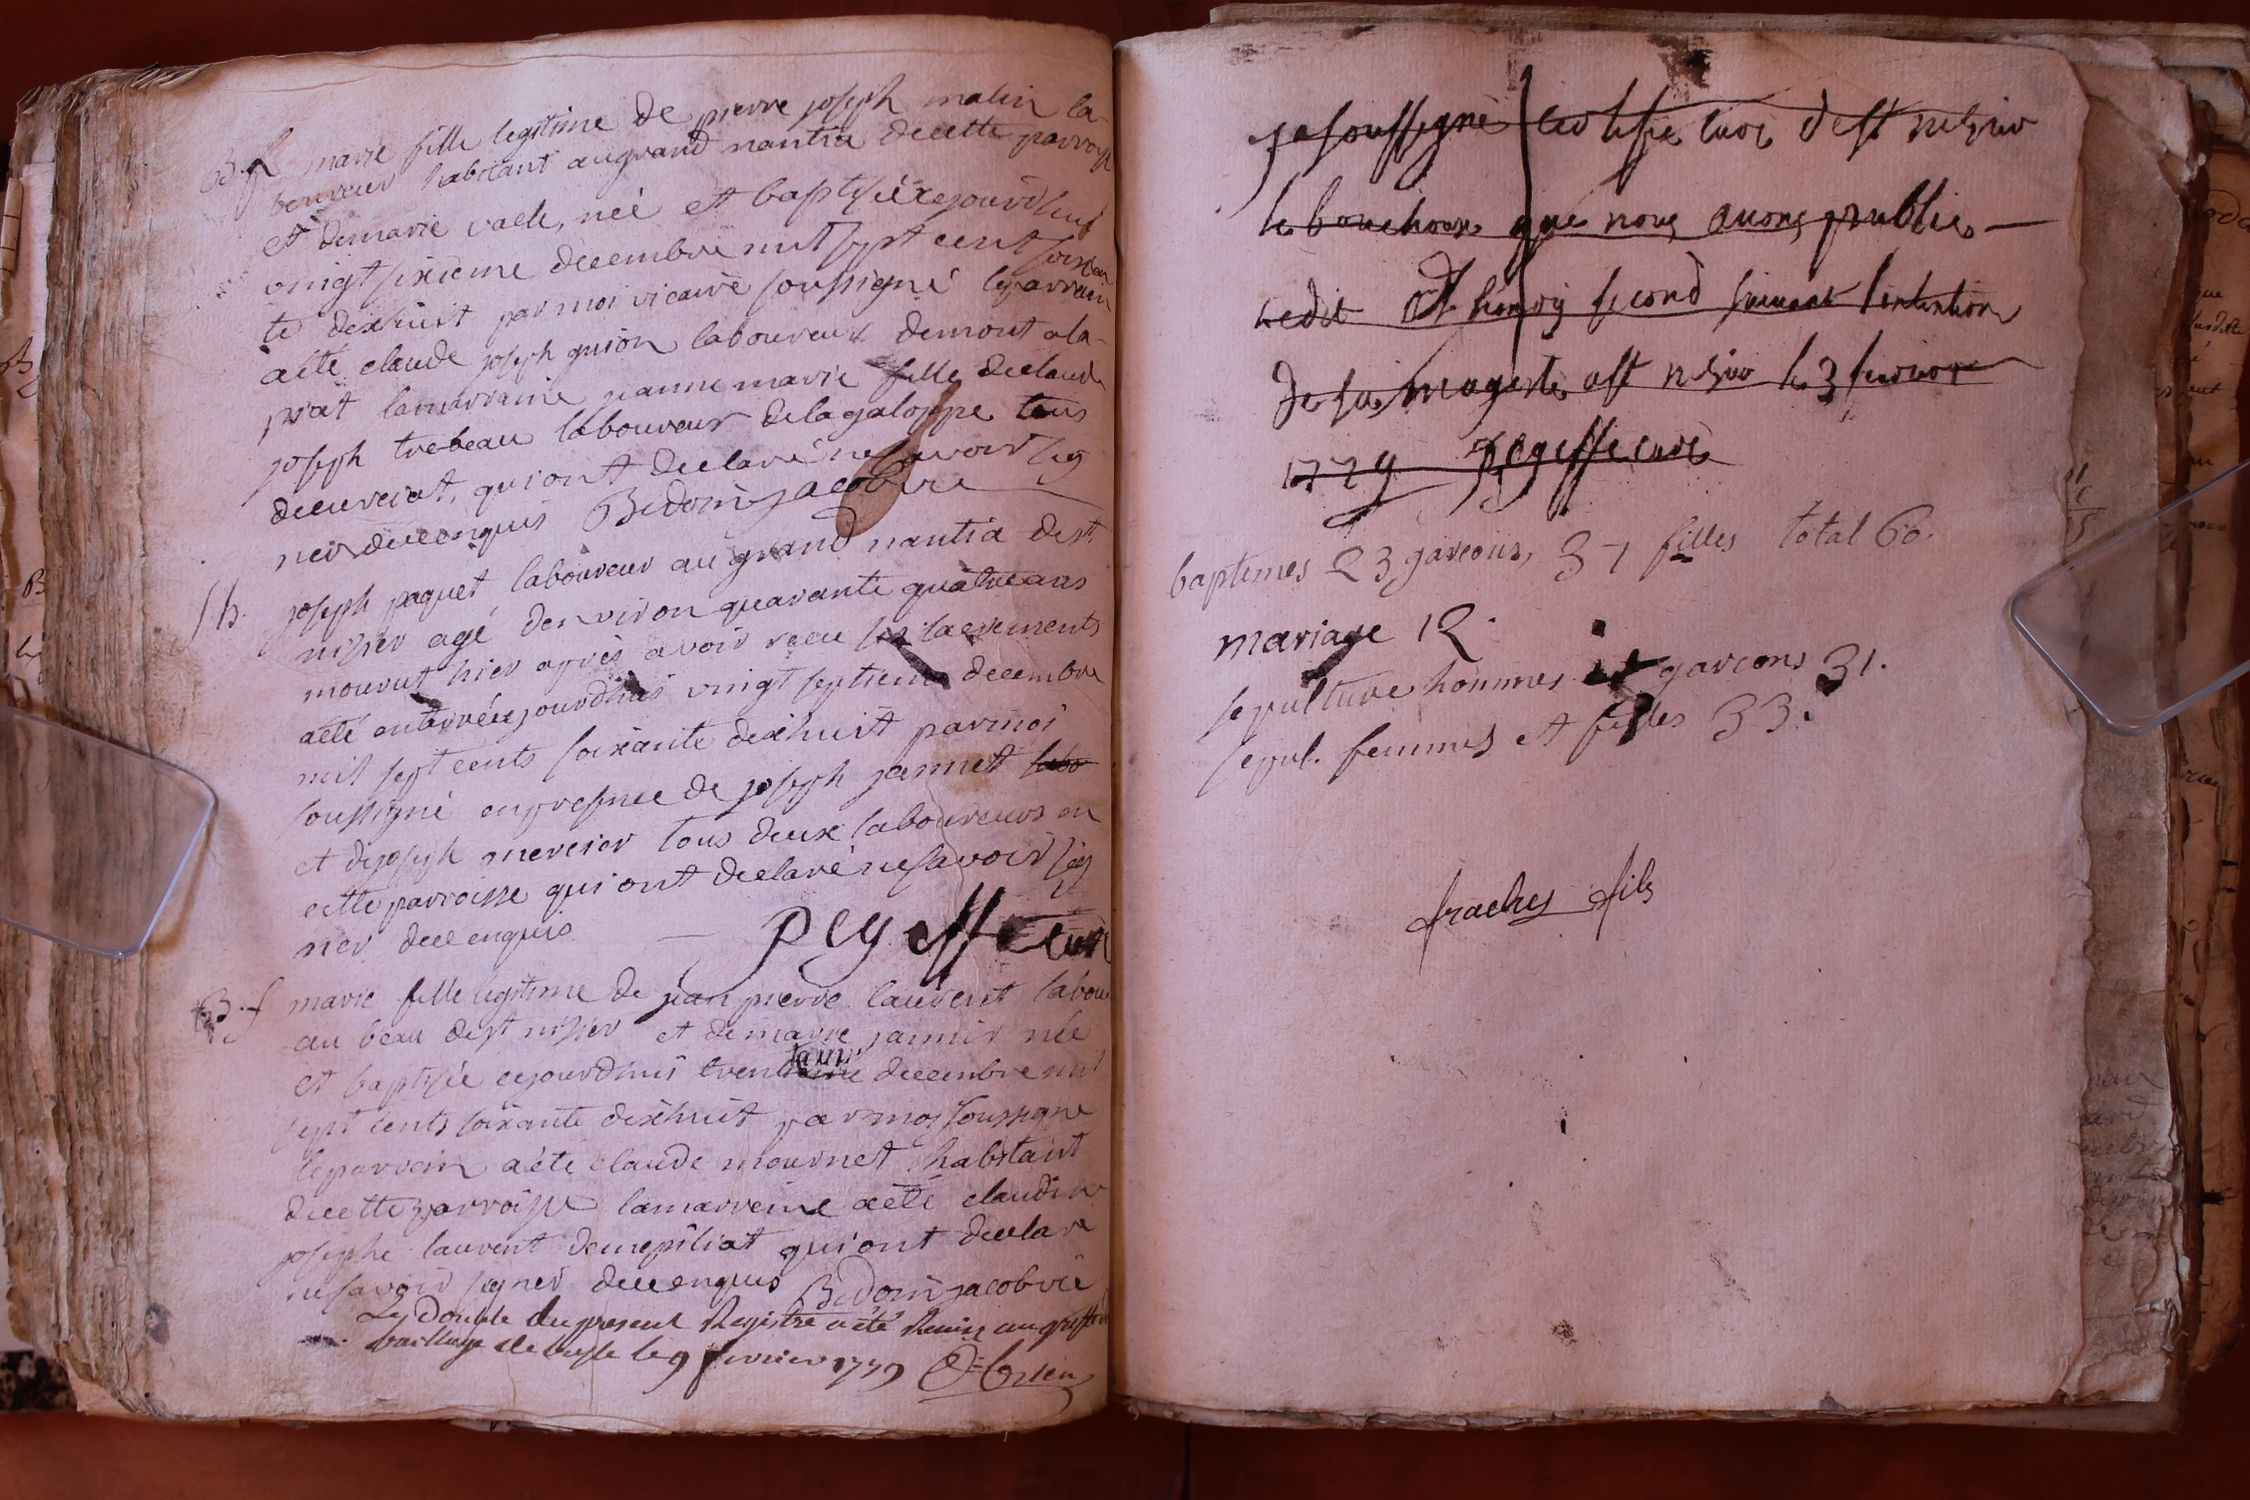 B. f. marie fille legitime de pierre joseph malin la-
boureur habitant augrand nantia decette parroisse
et demarie vaele, née et baptisée cejourdhui
vingt sixieme decembre mil sept cent soixan
te dexhuit par moi vicaire soussigné leparrain
aété claude joseph guion laboureur demont ala-
prat lamarraine jeanne marie fille declaude
joseph trebeau laboureur delagaloppe tous
decuveiat, qui ont declaré nesavoir sig
ner deceenquis Bedoin jacob vic
s h. joseph paquet laboureur au grand nantia de st
nisier agé denviron quarante quatre ans
mourut hier apres avoir recu les sacrements
aété enterré cejourdhui vingt septieme decembre
mil sept cents soixante dexhuit par moi
soussigné enpresence de joseph jannet labo
et dejoseph mercier tous deux laboureurs en
cette parroisse qui ont declaré nesavoir sig
ner deceenquis pegeffe curé
B. f marie fille legitime de jean pierre laurent labou
au beau dest nisier et demarie jannir née
et baptisée cejourdhui trentieme decembre mil
sept cents soixante dexhuit par moy soussigné
leparrain aété claude mournet habitant
decette parroisse lamarreine aété claudine
josephe laurent demepiliat qui ont declaré
nesavoir signer deceenquis Bedoin jacob vic
Le double du present Registre a été Remis au greffe du
bailliage de bresse le 9 fevrier 1779
je soussigné certifie curé dest nisier
le bouchoux que nous avons publié
ledit dhenry second suivant lintention
de sa majesté a st nisier le 3 fevrier
1779 pegeffe curé
baptemes 23 garcons, 37 filles total 60.
mariage 12.
sepulture hommes et garcons 31.
sepul. femmes et filles 33.
fraches fils